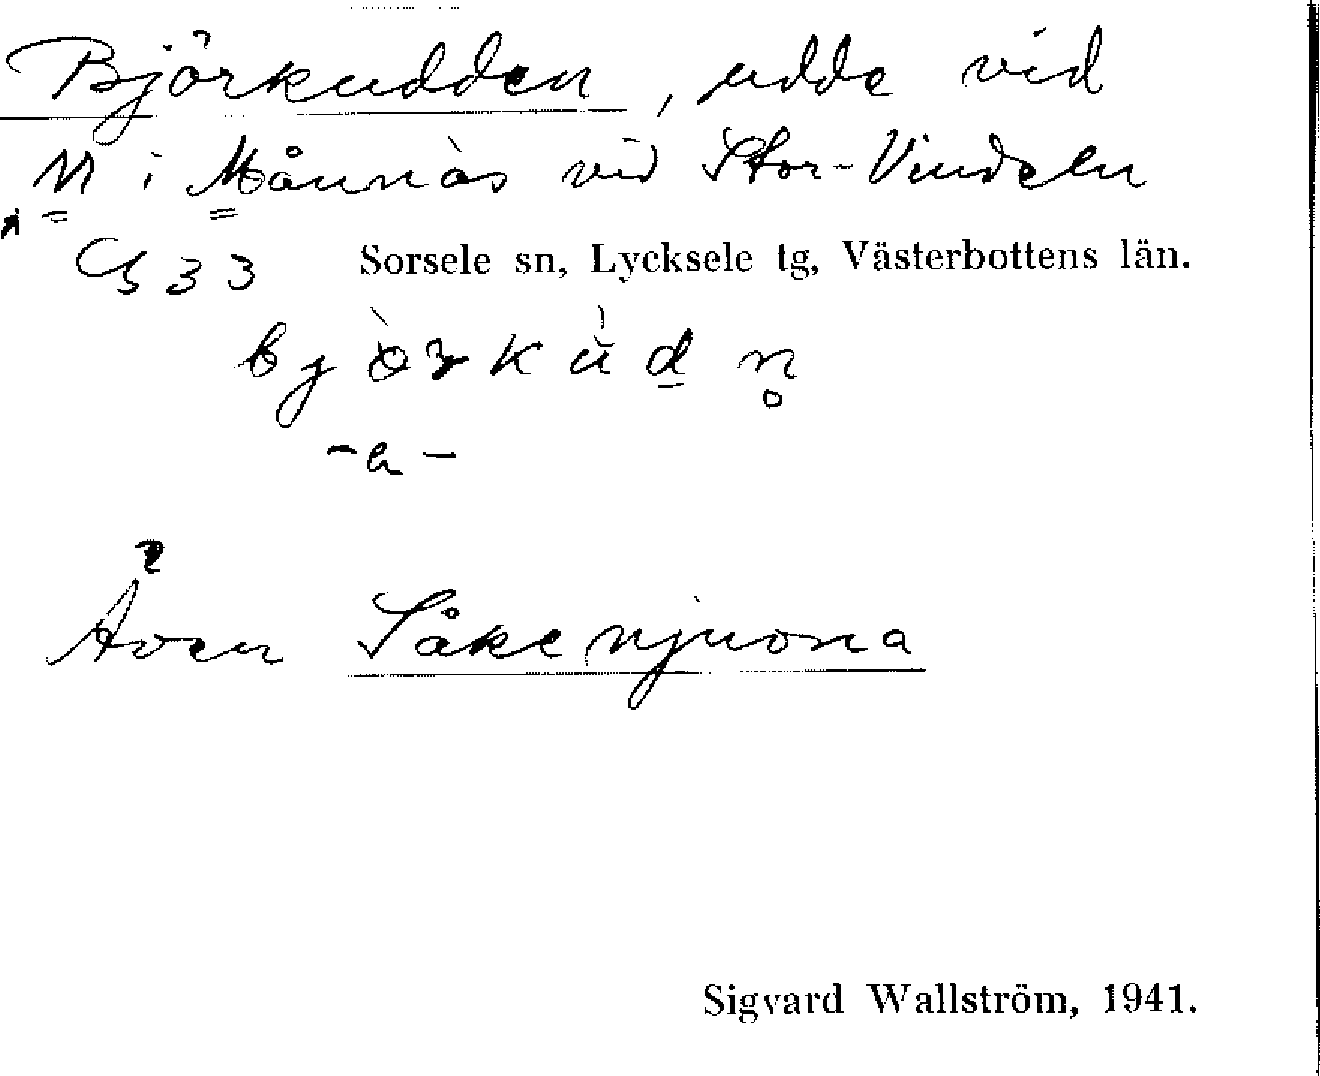 Björkudden, udde vid
M i Månnäs vid Stor-Vindeln
G 33 Sorsele sn, Lycksele tg, Västerbottens län.
Även Såkenjuona
Sigvard Wallström, 1941.